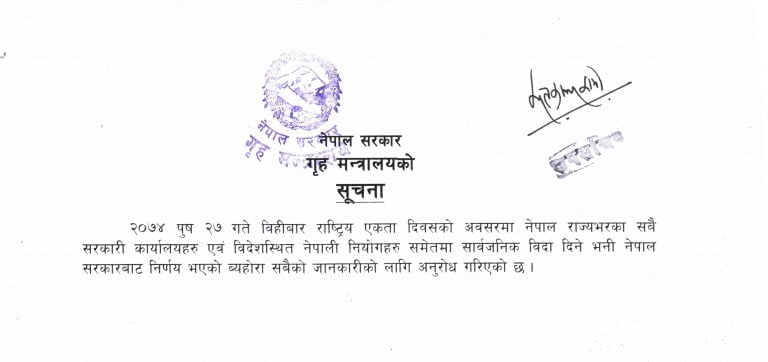 नेपाल सरकार
नेपाल सरकार
गृह मन्त्रालयको
सूचना
उपसचिव
२०७४ पुष २७ गते विहीबार राष्ट्रिय एकता दिवसको अवसरमा नेपाल राज्यभरका सबै
सरकारी कार्यालयहरु एवं विदेशस्थित नेपाली नियोगहरु समेतमा सार्वजनिक विदा दिने भनी नेपाल
सरकारबाट निर्णय भएको ब्यहोरा सबैको जानकारीको लागि अनुरोध गरिएको छ ।